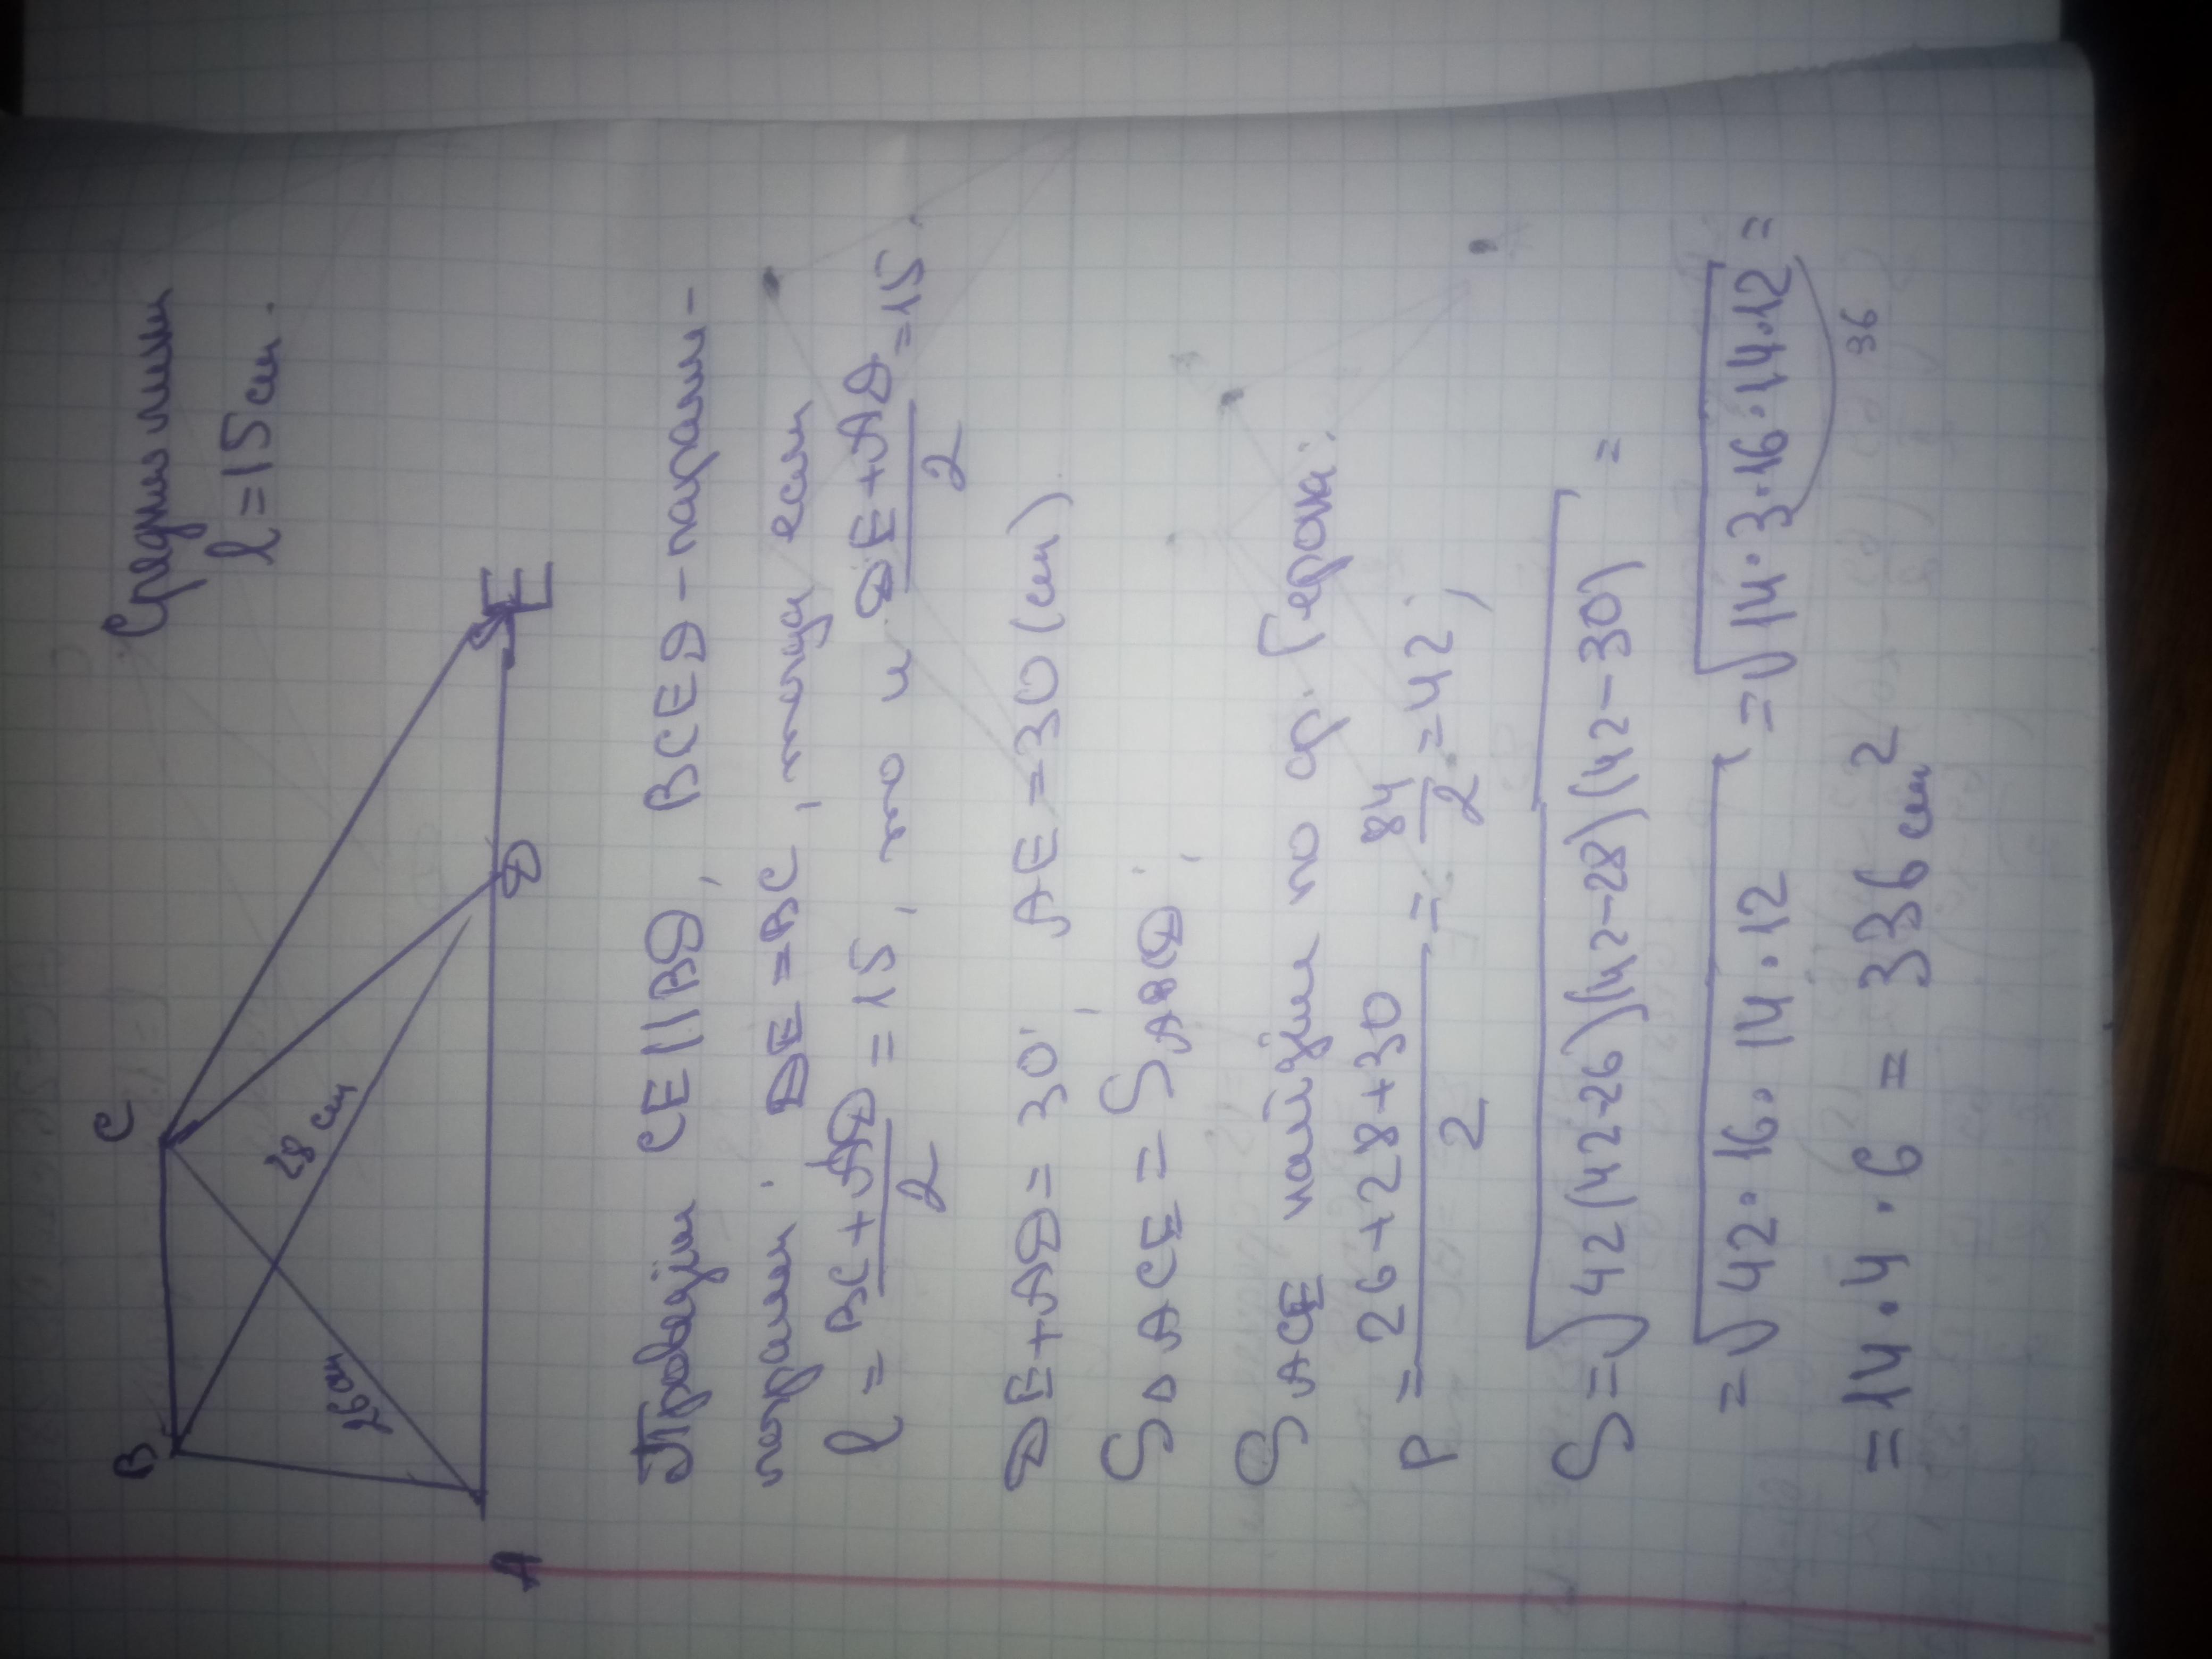 Средняя линия
l = 15 см.
B
C
28 см
26 см
A
D
E
Проведём CE || BD, BCED - парал-
лелограмм. DE = BC, тогда если
l = BC + AD / 2 = 15, то и DE + AD / 2 = 15.
DE + AD = 30. AE = 30 (см).
S△ACE = SABCD.
SACE найдём по ф. Герона:
P = 26 + 28 + 30 / 2 = 84 / 2 = 42;
S = √42(42-26)(42-28)(42-30) =
= √42·16·14·12 = √14·3·16·14·12 =
36
= 14·4·6 = 336 см²